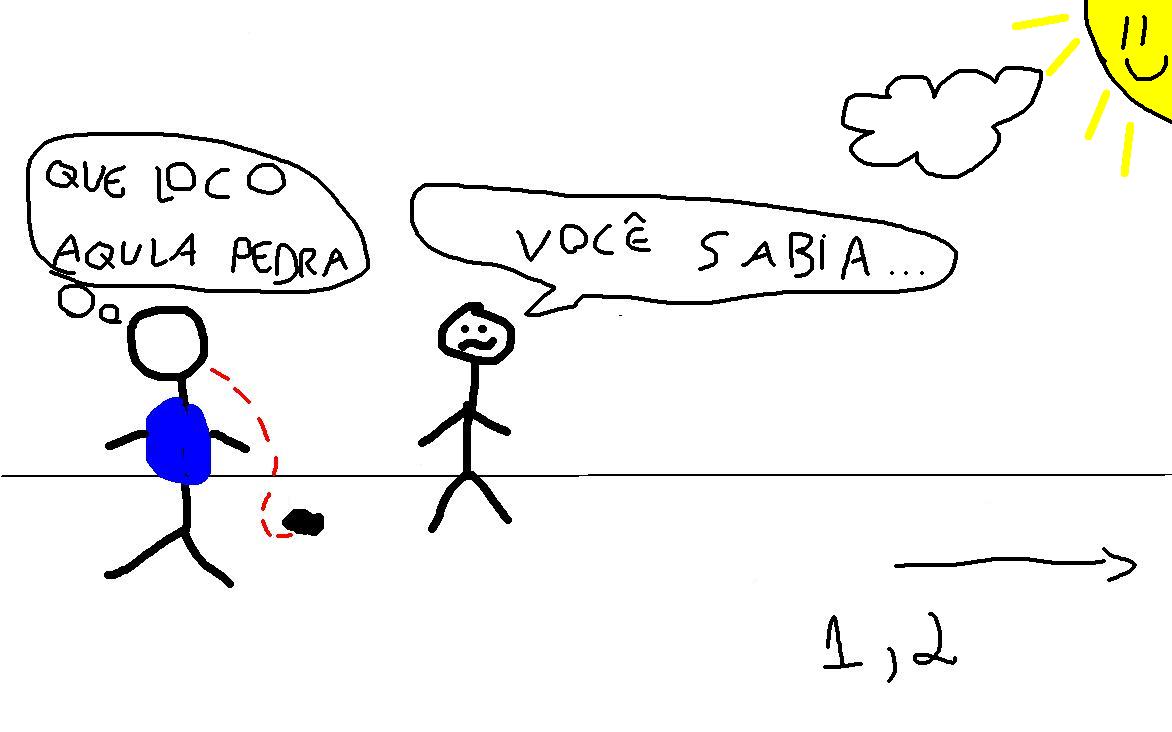 QUE LOCO
AQULA PEDRA
VOCÊ SABIA...
1,2